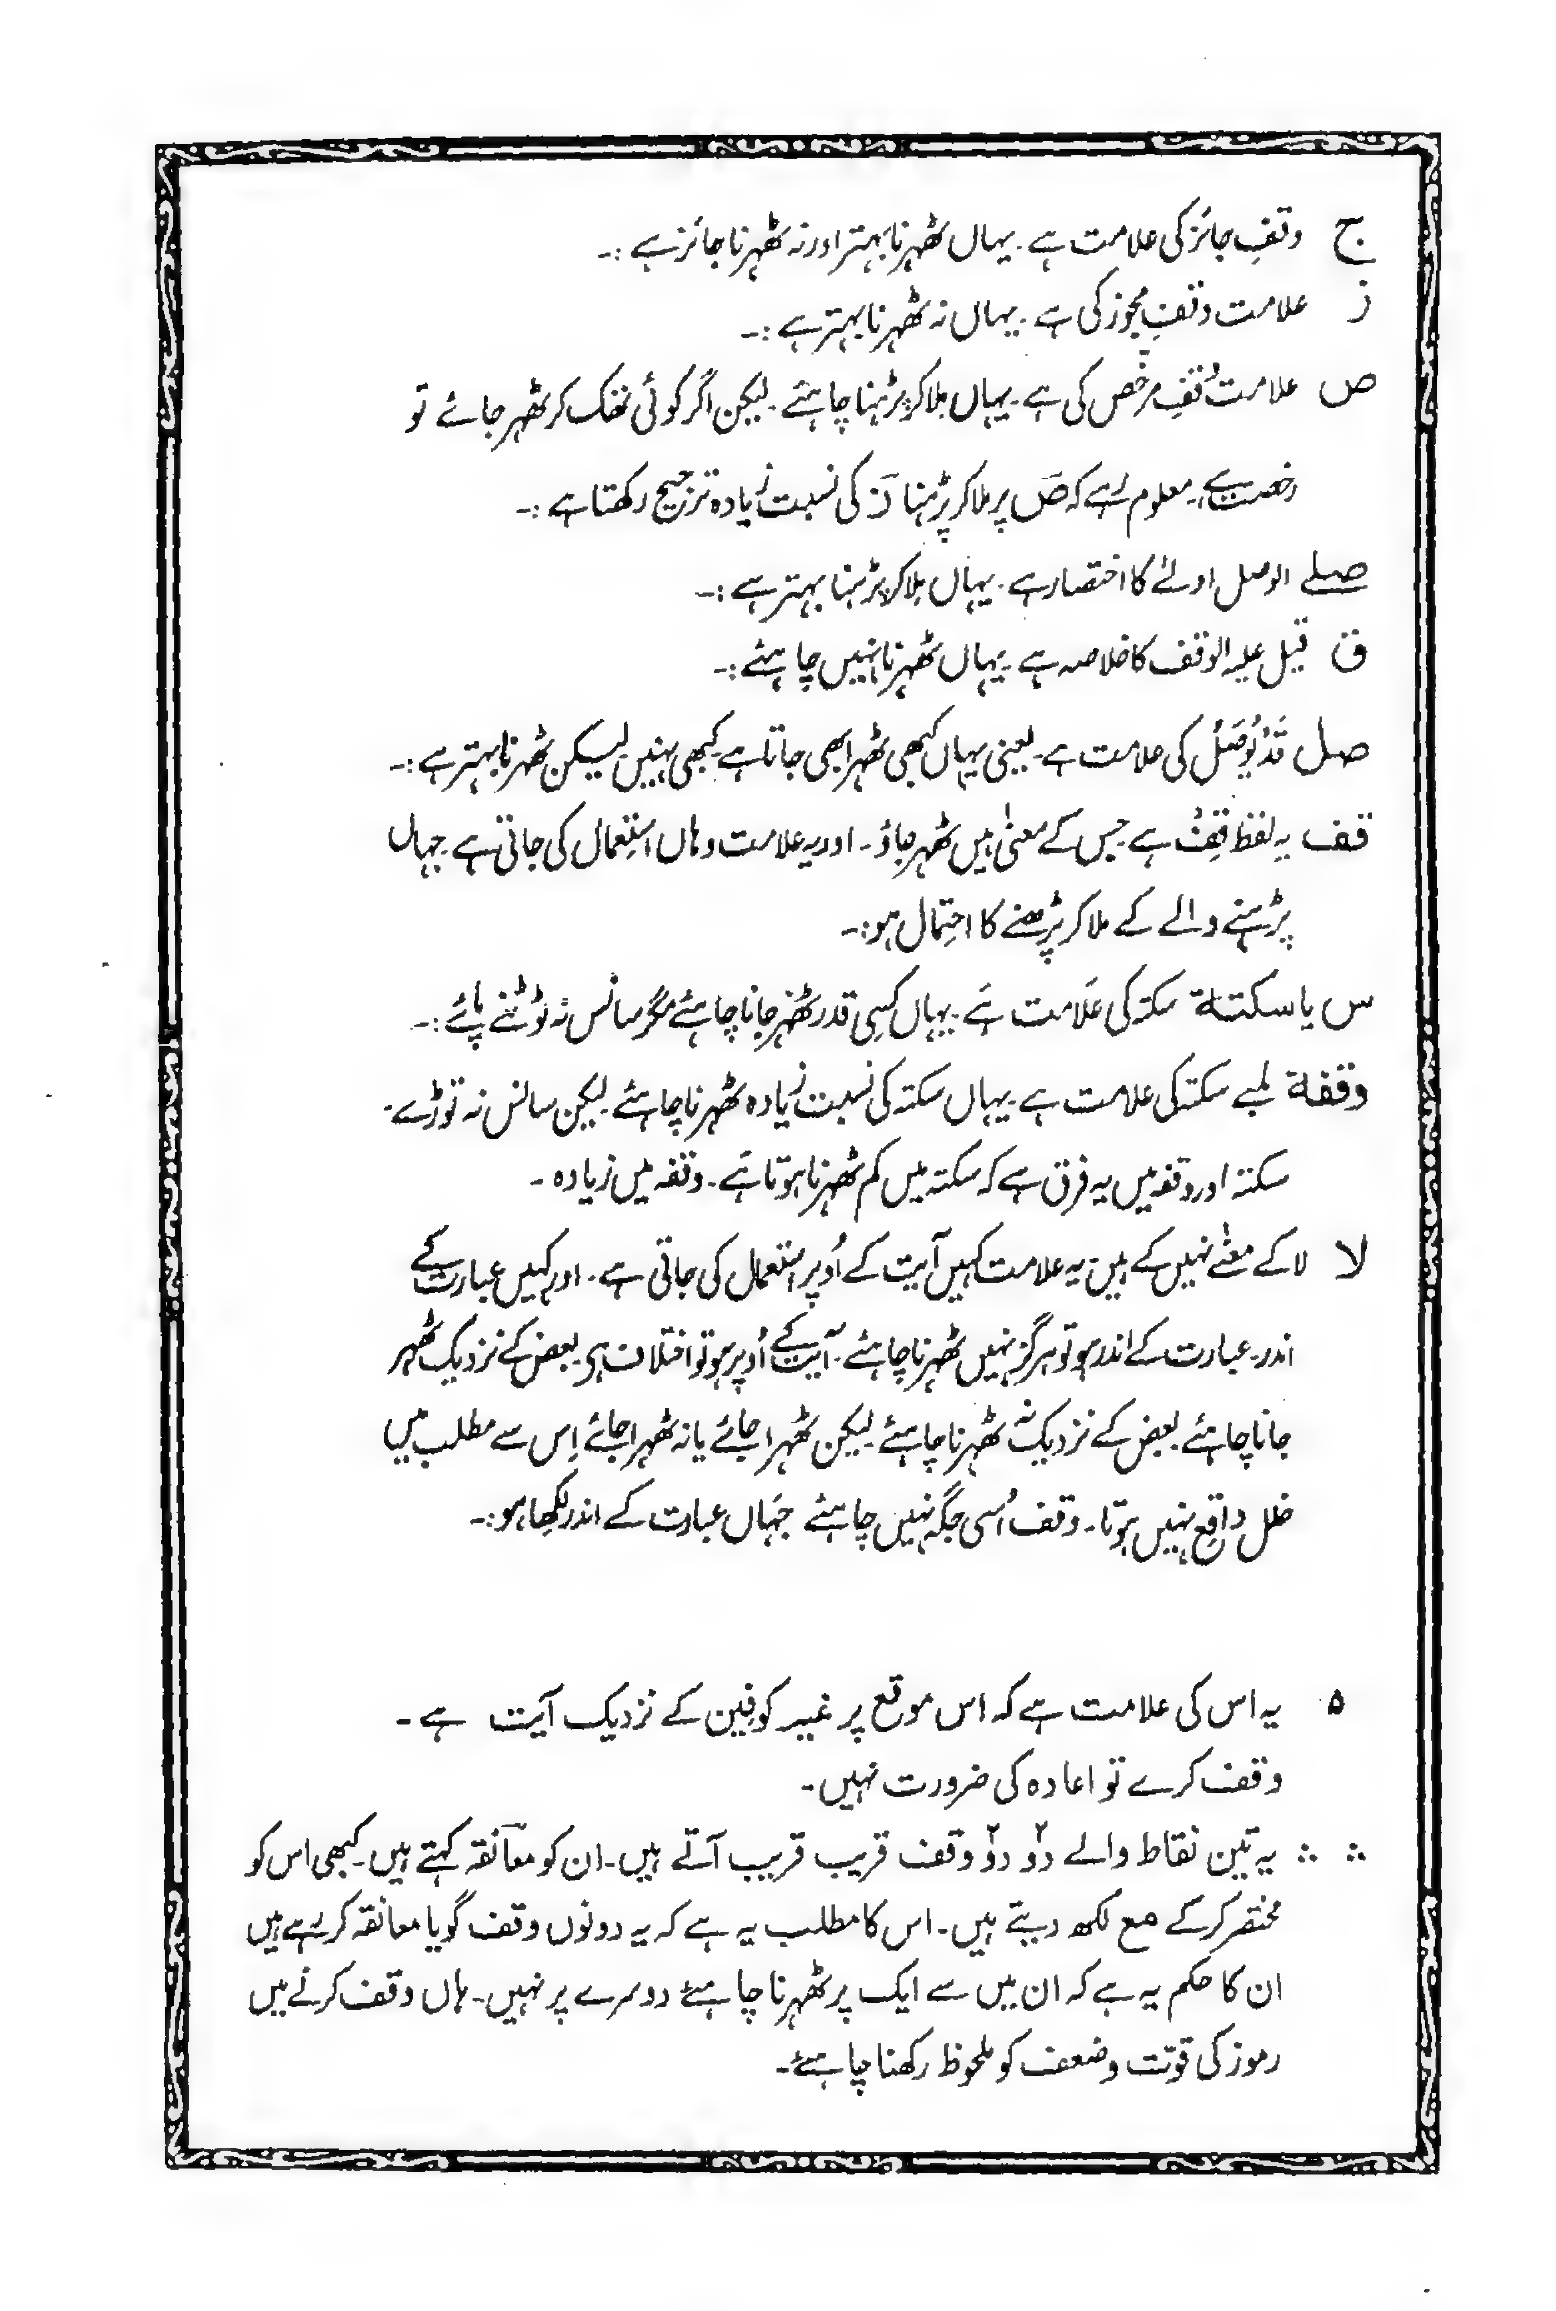 ج وقفِ جائز کی علامت ہے۔ یہاں ٹھہرنا بہتر اور نہ ٹھہرنا جائز ہے :۔
ز علامت وقفِ مجوز کی ہے۔ یہاں نہ ٹھہرنا بہتر ہے :۔
ص علامت وقفِ مرخص کی ہے۔ یہاں ملا کر پڑہنا چاہئے۔ لیکن اگر کوئی تھک کر ٹھہر جائے تو
رخصت ہے۔ معلوم رہے کہ صؔ پر ملا کر پڑہنا زؔ کی نسبت زیادہ ترجیح رکھتا ہے :۔
صلے الوصل اولےٰ کا اختصار ہے۔ یہاں ملا کر پڑہنا بہتر ہے :۔
ق قیل علیہ الوقف کا خلاصہ ہے۔ یہاں ٹھہرنا نہیں چاہئے :۔
صل قَدْ یُوصَلُ کی علامت ہے۔ یعنی یہاں کبھی ٹھہرا بھی جاتا ہے۔ کبھی نہیں۔ لیکن ٹھہرنا بہتر ہے :۔
قف یہ لفظ قِفْ ہے جس کے معنیٰ ہیں ٹھہر جاؤ۔ اور یہ علامت وہاں استِعمال کی جاتی ہے۔ جہاں
پڑہنے والے کے ملا کر پڑھنے کا احتِمال ہو :۔
س یا سکتۃ سکتہ کی عَلامت ہَے۔ یہاں کسِی قدر ٹھہَر جانا چاہئے مگر سانس نہ ٹوٹنے پائے :۔
وقفۃ لمبے سکتہ کی علامت ہے۔ یہاں سکتہ کی نسبت زیادہ ٹھہرنا چاہئے۔ لیکن سانس نہ توڑے۔
سکتہ اور وقفہ میں یہ فرق ہے کہ سکتہ میں کم ٹھہرنا ہوتا ہَے۔ وقفہ میں زیادہ ۔
لا لا کے معنٰے نہیں کے ہیں۔ یہ علامت کہیں آیت کے اُوپر استعمال کی جاتی ہے۔ اور کہیں عبارت کے
اندر۔ عبارت کے اندر ہو تو ہرگز نہیں ٹھہرنا چاہئے۔ آیت کے اُوپر ہو تو اختلاف ہی۔ بعض کے نزدیک ٹھہر
جانا چاہئے بعض کے نزدیک نہ ٹھہرنا چاہئے۔ لیکن ٹھہرا جائے یا نہ ٹھہرا جائے اِس سے مطلب میں
خلل واقع نہیں ہوتا۔ وقف اُسی جگہ نہیں چاہئے جَہاں عبارت کے اندر لکھا ہو :۔
۵ یہ اس کی علامت ہے کہ اس موقع پر غیر کوفِین کے نزدیک آیت ہے ۔
وقف کرے تو اعادہ کی ضرورت نہیں۔
∴ ∴ یہ تین نقاط والے دوؔ دوؔ وقف قریب قریب آتے ہیں۔ ان کو معانَقہ کہتے ہیں۔ کبھی اس کو
مختصر کرکے مع لکھ دیتے ہیں۔ اس کا مطلب یہ ہے کہ یہ دونوں وقف گویا معانقہ کر رہے ہیں
ان کا حکم یہ ہے کہ ان میں سے ایک پر ٹھہرنا چاہئے دوسرے پر نہیں۔ ہاں وقف کرنے میں
رموز کی قوت وضعف کو ملحوظ رکھنا چاہئے۔